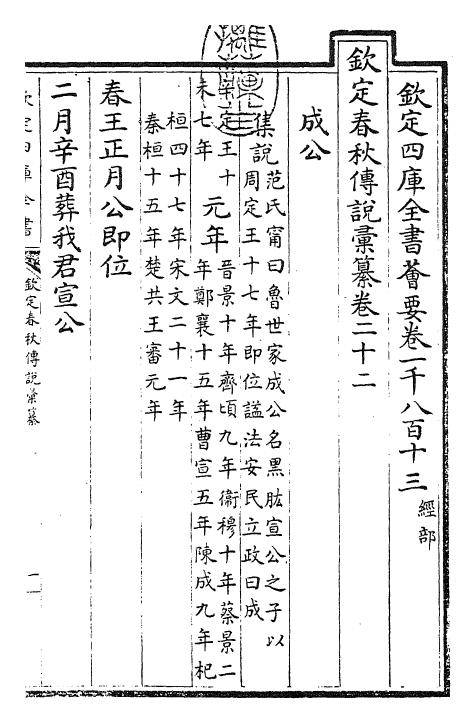 欽定四庫全書薈要卷一千八百十三 經部
欽定春秋傳說彙纂卷二十二
成公
集說范氏甯曰魯世家成公名黑肱宣公之子以
周定王十七年即位謚法安民立政曰成
辛未
定王十七年
元年
晉景十年齊頃九年衞穆十年蔡景二
年鄭襄十五年曹宣五年陳成九年杞
桓四十七年宋文二十一年
秦桓十五年楚共王審元年
春王正月公即位
二月辛酉葬我君宣公
欽定四庫全書
欽定春秋傳說彙纂
一